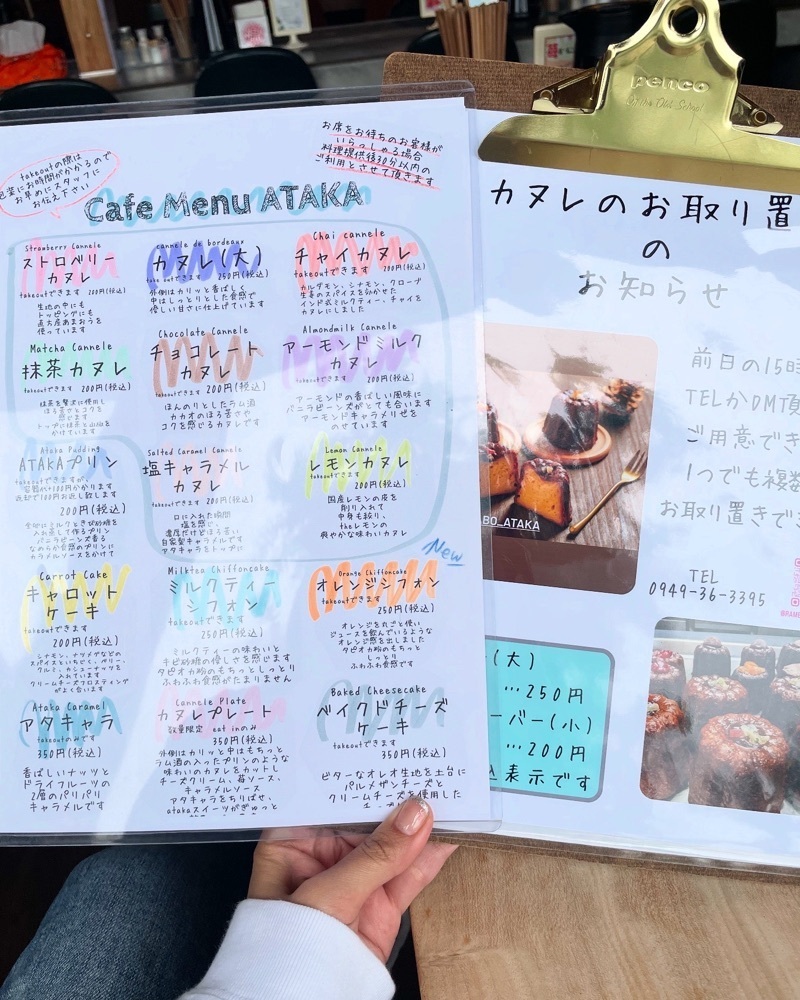 takeoutの際は
包装にお時間がかかるので
お早めにスタッフに
お伝え下さい
お席をお待ちのお客様が
いらっしゃる場合
料理提供後30分以内の
ご利用とさせて頂きます
Cafe Menu ATAKA
Strawberry Cannele
ストロベリー
カヌレ
takeoutできます 200円(税込)
生地の中にも
トッピングにも
直方産あまおうを
使っています
cannele de bordeaux
カヌレ(大)
takeoutできます 250円(税込)
外側はカリッと香ばしく
中はしっとりとした食感で
優しい甘さに仕上げています
Chai cannele
チャイカヌレ
takeoutできます 200円(税込)
カルダモン、シナモン、クローブ
生姜のスパイスを効かせた
インド式ミルクティー、チャイを
カヌレにしました
Matcha Cannele
抹茶カヌレ
takeoutできます 200円(税込)
抹茶を贅沢に使用し
ほろ苦さとコクを
感じます
かけています
Chocolate Cannele
チョコレート
カヌレ
takeoutできます 200円(税込)
ほんのりとしたラム酒
カカオのほろ苦さや
コクを感じるカヌレです
Almondmilk Cannele
アーモンドミルク
カヌレ
takeoutできます 200円(税込)
アーモンドの香ばしい風味に
バニラビーンズがとても合います
アーモンドキャラメリゼを
のせています
Ataka Pudding
ATAKAプリン
takeoutできますが
容器代+100円かかります
返却で100円お返し致します
200円(税込)
入れ蒸して作るプリン
バニラビーンズ香る
なめらか食感のプリンに
カラメルソースをかけて
Salted Caramel Cannele
塩キャラメル
カヌレ
takeoutできます 200円(税込)
口に入れた瞬間
塩を感じ、
濃厚だけどほろ苦い
自家製キャラメルです
アタキャラをトップに
Lemon Cannele
レモンカヌレ
takeoutできます 200円(税込)
国産レモンの皮を
削り入れて
中身も絞り、
theレモンの
爽やかな味わいカヌレ
New
Carrot Cake
キャロット
ケーキ
takeoutできます
200円(税込)
シナモン、ナツメグなどの
スパイスといちじく、ベリー、
クルミ、カシューナッツを
入れています
クリームチーズフロスティング
がよく合います
Milktea Chiffoncake
ミルクティー
シフォン
takeoutできます
250円(税込)
ミルクティーの味わいと
キビ砂糖の優しさを感じます
タピオカ粉のもちっとしっとり
ふわふわ食感がたまりません
Orange Chiffoncake
オレンジシフォン
takeoutできます
250円(税込)
オレンジを丸ごと使い
ジュースを飲んでいるような
オレンジ感を出しました
タピオカ粉のもちっと
しっとり
ふわふわ食感です
Ataka Caramel
アタキャラ
takeoutのみです
350円(税込)
香ばしいナッツと
ドライフルーツの
2層のパリパリ
キャラメルです
Cannele Plate
カヌレプレート
数量限定 eat inのみ
350円(税込)
外側はカリッと中はもちっと
ラム酒の入ったプリンのような
味わいのカヌレをカットし
チーズクリーム、苺ソース、
キャラメルソース
アタキャラをちりばせ、
atakaスイーツがぎゅっと
Baked Cheesecake
ベイクドチーズ
ケーキ
takeoutできます
350円(税込)
ビターなオレオ生地を土台に
パルメザンチーズと
クリームチーズを使用した
penco
カヌレのお取り置
の
お知らせ
前日の15時
TELかDM頂
ご用意でき
1つでも複数
お取り置きで
TEL
0949-36-3395
BO_ATAKA
(大)
…250円
ーバー(小)
…200円
込表示です